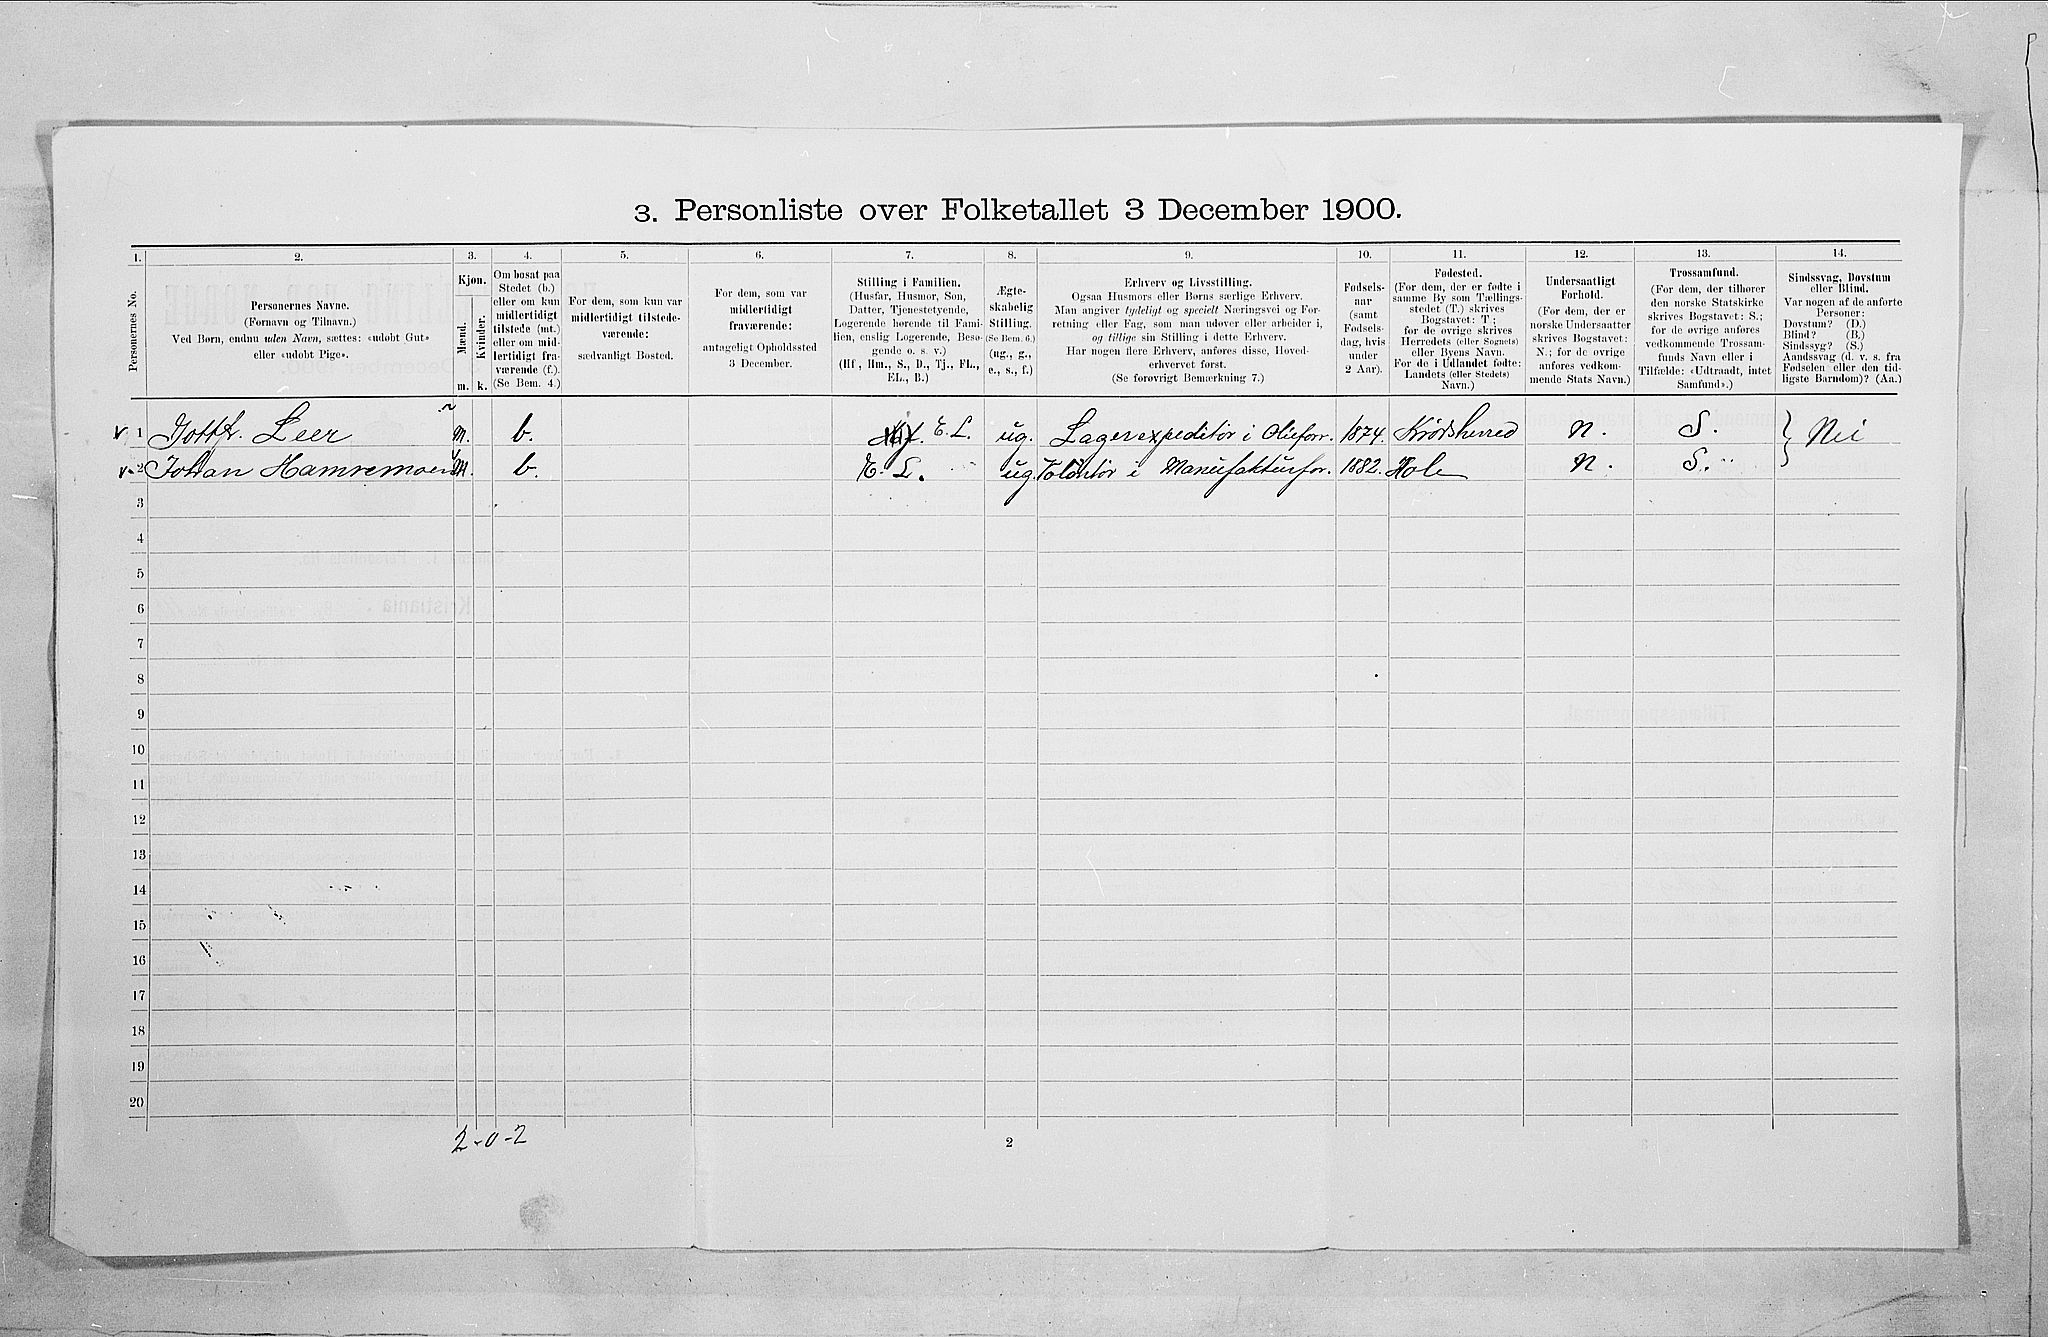 3. Personliste over Folketallet 3 December 1900.
1. 2. 3. 4. 5. 6. 7. 8. 9. 10. 11. 12. 13. 14.
Personernes No.
Personernes Navne.
(Fornavn og Tilnavn.)
Ved Børn, endnu uden Navn, sættes: «udøbt Gut»
eller «udøbt Pige».
Kjøn.
Mænd.
Kvinder.
m. k.
Om bosat paa
Stedet (b.)
eller om kun
midlertidigt
tilstede (mt.)
eller om mid-
lertidigt fra-
værende (f.).
(Se Bem. 4.)
For dem, som kun var
midlertidigt tilstede-
værende:
sædvanligt Bosted.
For dem, som var
midlertidigt
fraværende:
antageligt Opholdssted
3 December.
Stilling i Familien.
(Husfar, Husmor, Søn,
Datter, Tjenestetyende,
Logerende hørende til Fami-
lien, enslig Logerende, Besø-
gende o. s. v.)
(Hf, Hm., S., D., Tj., FL.,
EL., B.)
Ægte-
skabelig
Stilling.
(Se Bem. 6.)
(ug., g.,
e., s., f.)
Erhverv og Livsstilling.
Ogsaa Husmors eller Børns særlige Erhverv.
Man angiver tydeligt og specielt Næringsvei og For-
retning eller Fag, som man udøver eller arbeider i,
og tillige sin Stilling i dette Erhverv.
Har nogen flere Erhverv, anføres disse, Hoved-
erhvervet først.
(Se forøvrigt Bemærkning 7.)
Fødsels-
aar
(samt
Fødsels-
dag, hvis
under
2 Aar).
Fødested.
(For dem, der er fødte i
samme By som Tællings-
stedet (T.) skrives
Bogstavet: T;
for de øvrige skrives
Herredets (eller Sognets)
eller Byens Navn.
For de i Udlandet fødte:
Landets (eller Stedets)
Navn.)
Undersaatligt
Forhold.
(For dem, der er
norske Undersaatter
skrives Bogstavet:
N.; for de øvrige
anføres vedkom-
mende Stats Navn.)
Trossamfund.
(For dem, der tilhører
den norske Statskirke
skrives Bogstavet: S.;
for de øvrige anføres
vedkommende Trossam-
funds Navn eller i
Tilfælde: «Udtraadt, intet
Samfund».)
Sindssvag, Døvstum
eller Blind.
Var nogen af de anførte
Personer:
Døvstum? (D.)
Blind? (B.)
Sindssyg? (S.)
Aandssvag (d. v. s. fra
Fødselen eller den tid-
ligste Barndom)? (Aa.)
1 Gottfr. Leer m. b. E. L. ug. Lagerexpeditør i Olieforr. 1874. Krødsherred N. S. Nei
2 Johan Hamremoen M. b. E. L. ug. Volontør i Manufakturfor. 1882. Hole N. S.
3
4
5
6
7
8
9
10
11
12
13
14
15
16
17
18
19
20
2-0-2
2